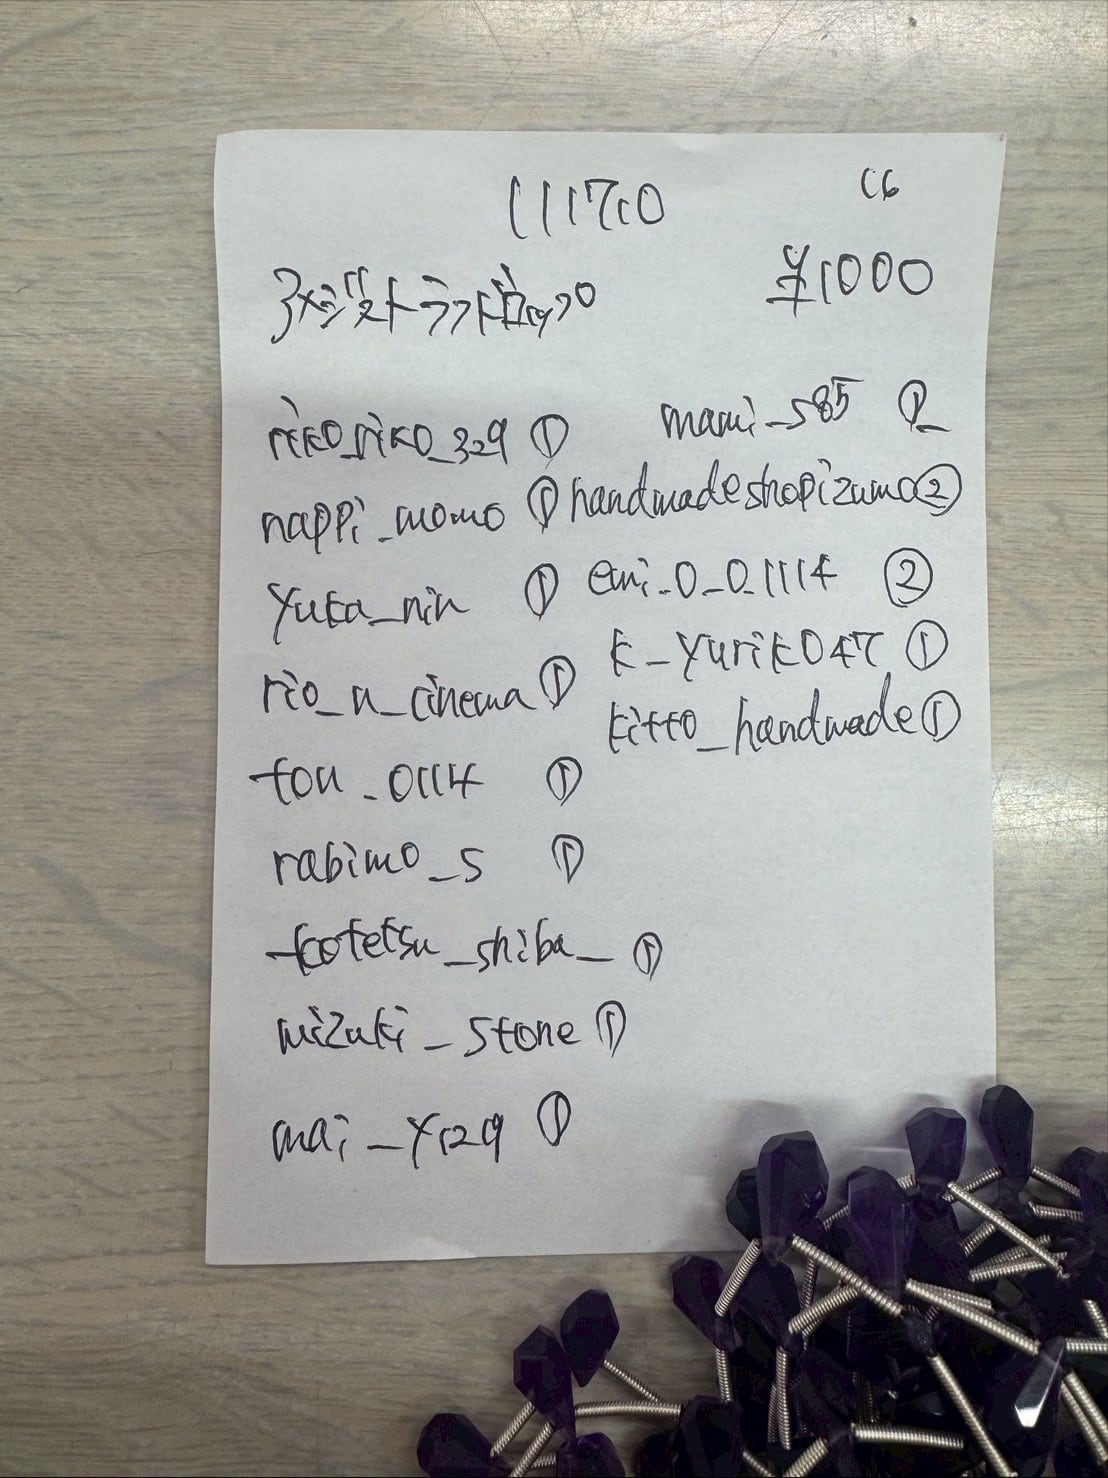 111710
C6
アメジストラフドロップ
¥1000
riko_riko_329 ①
nappi_momo ①
yuka_nin ①
rio_n_cinema ①
tou_0114 ①
rabimo_s ①
kotetsu_shiba_ ①
mizuki_stone ①
mai_y129 ①
mami_s85
handmadeshopizumo ②
emi_0_0_1114 ②
k_yuriko47 ①
kitto_handmade ①